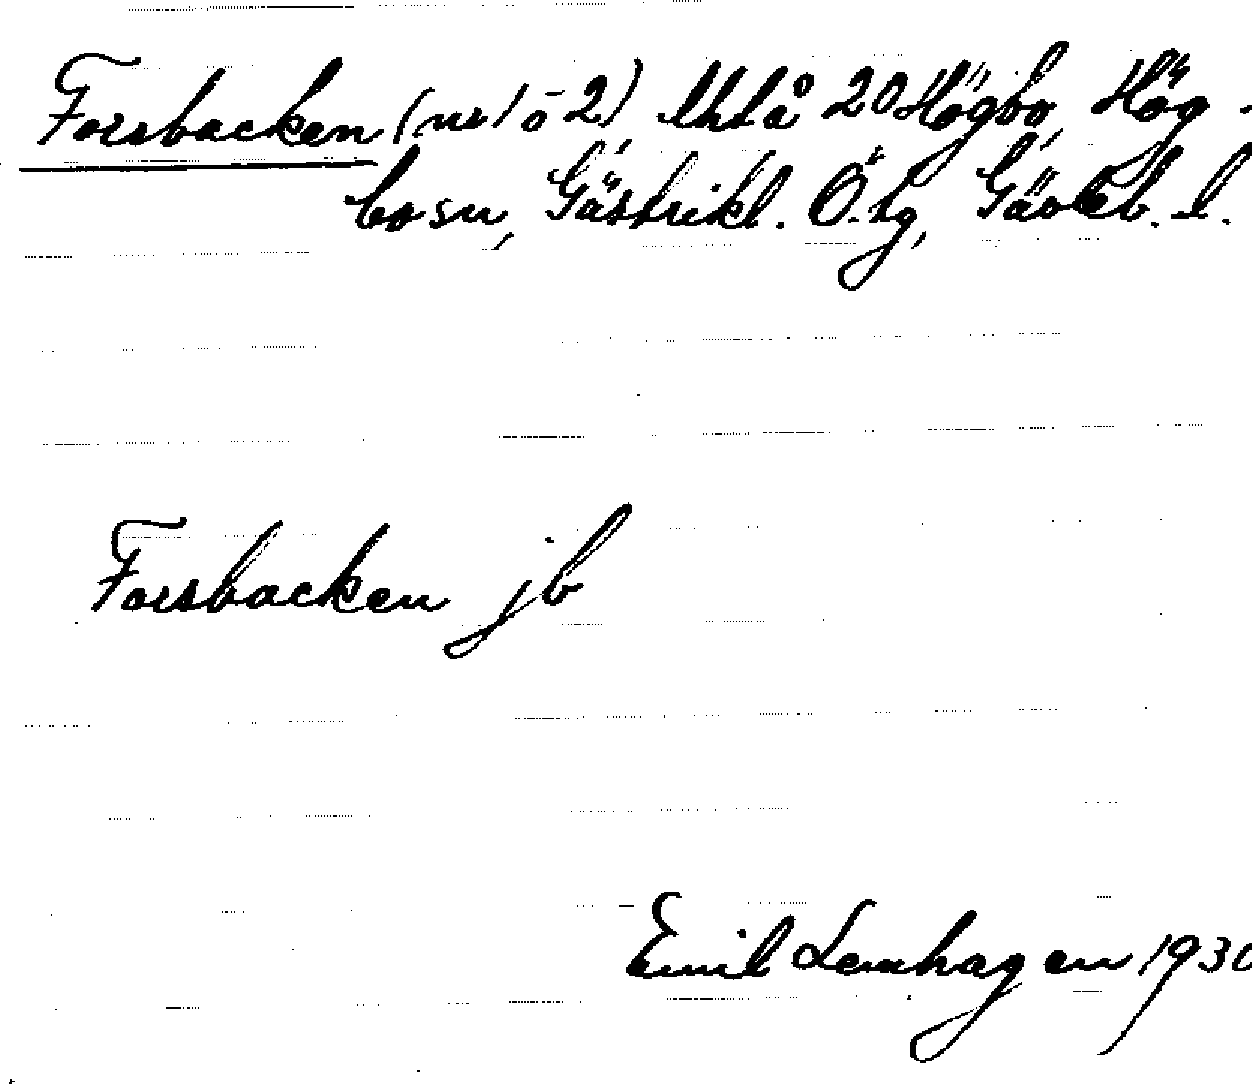 Forsbacken (nr 1 o 2), Uhlå 20 Högbo, Hög-
bo sn, Gästrikl. Ö. tg, Gävleb. l.
Forsbacken jb
Emil Lenhagen 1930